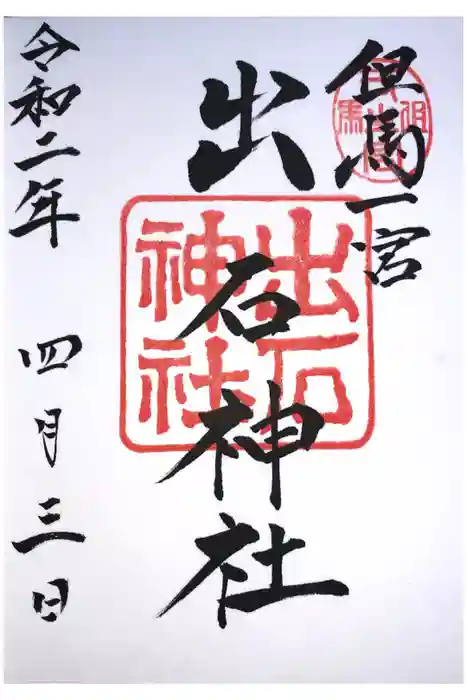 但馬一宮
出石神社
出石
神社
令和二年 四月三日